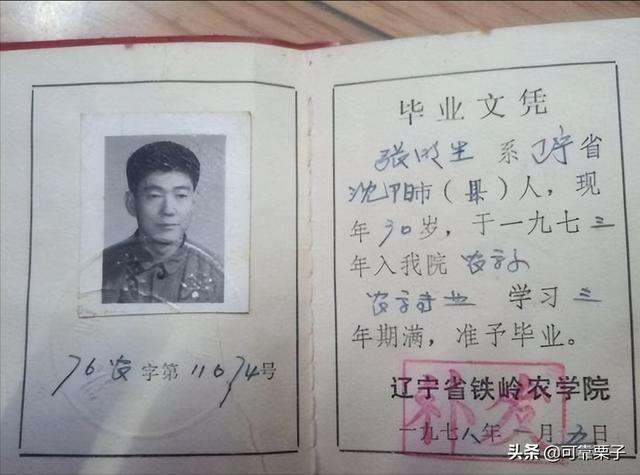 76农字第11074号
毕业文凭
张明生 系 辽宁省
沈阳市（县）人，现
年30岁，于一九七三
年入我院 农学系
农学专业 学习三
年期满，准予毕业。
辽宁省铁岭农学院
补发
一九七八年一月九日
头条 @可靠栗子